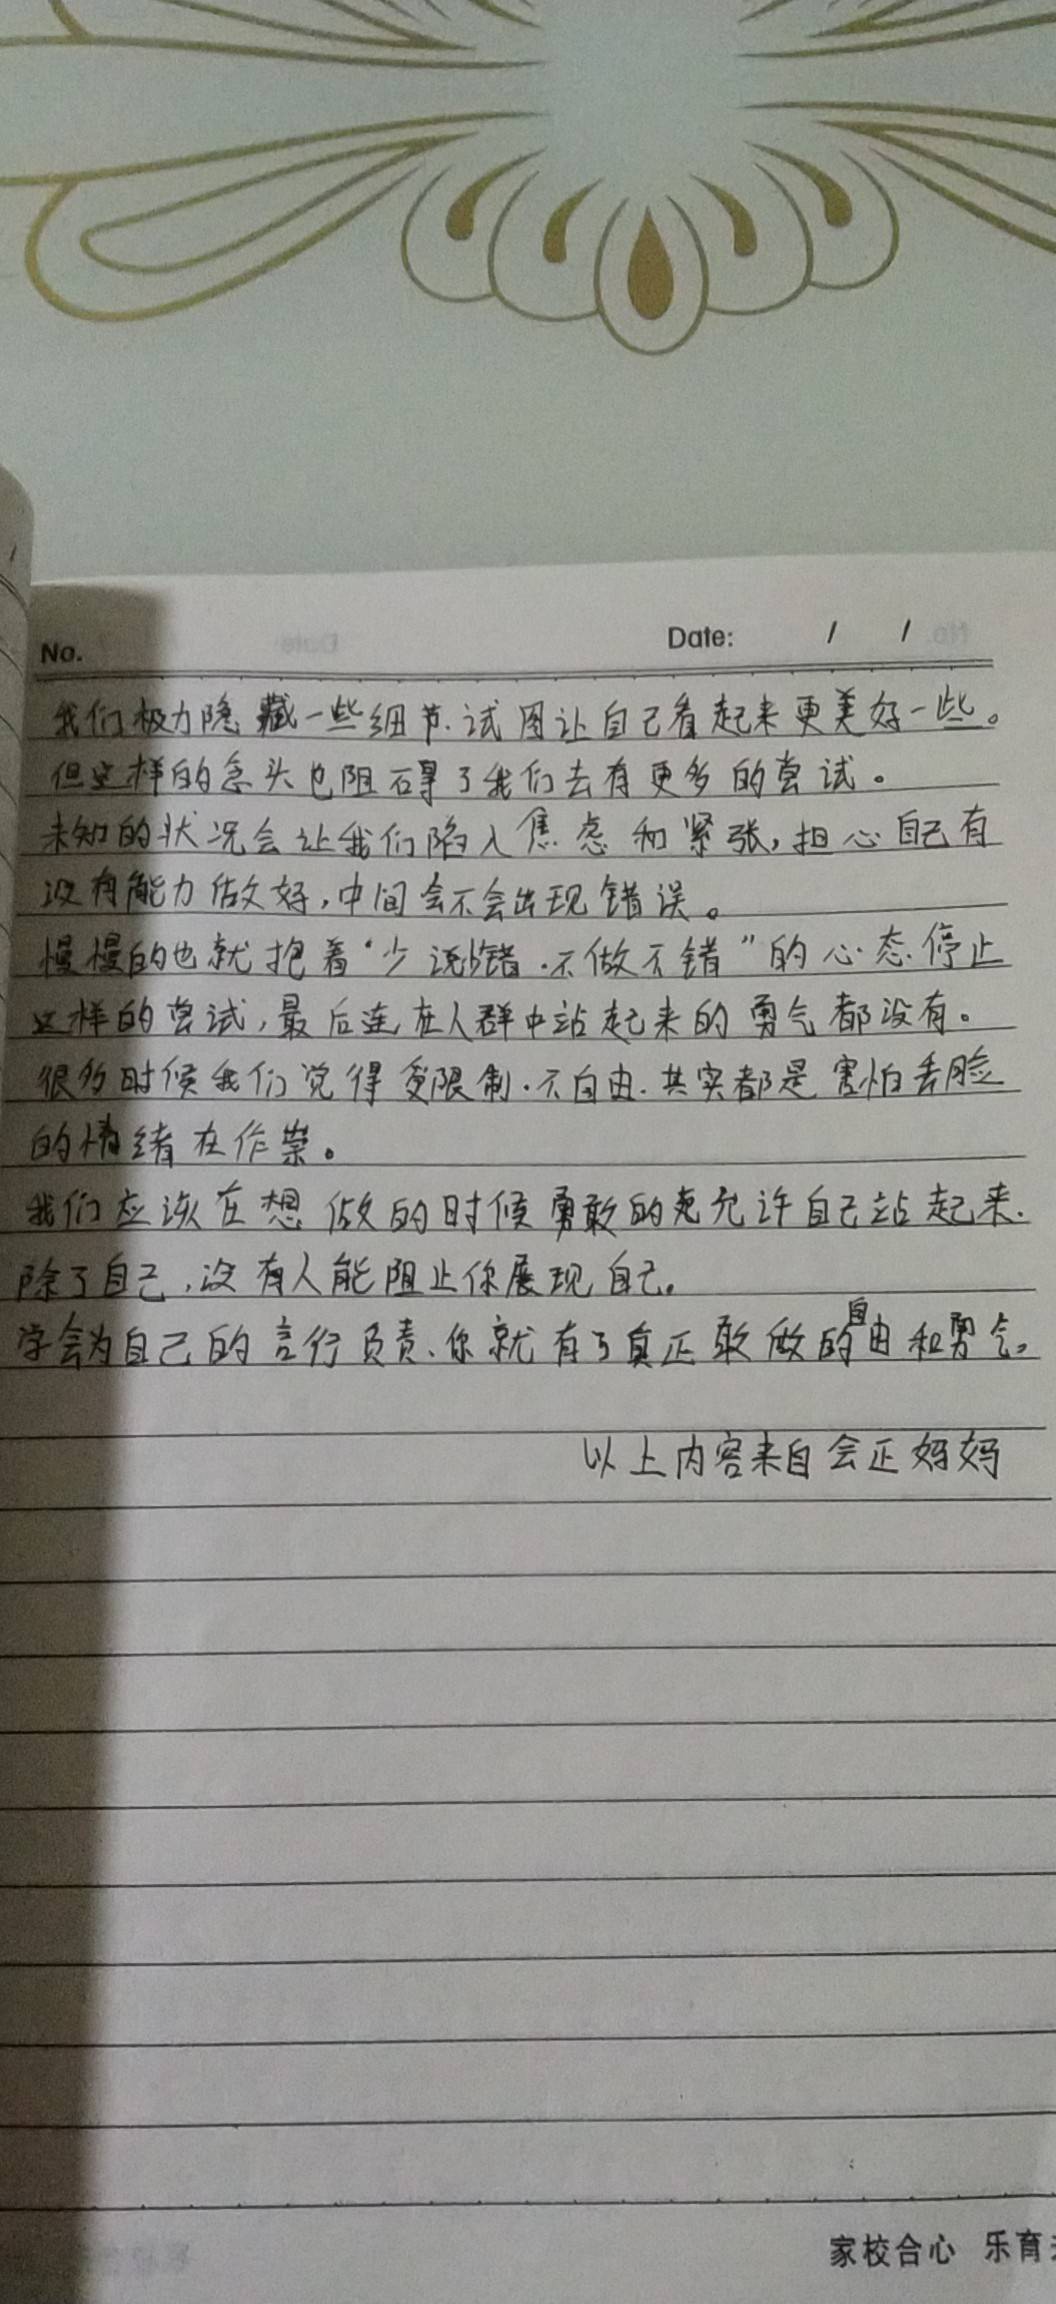 No. Date: / /
我们极力隐藏一些细节.试图让自己看起来更美好一些。
但这样的念头也阻碍了我们去有更多的尝试。
未知的状况会让我们陷入焦虑和紧张,担心自己有
没有能力做好,中间会不会出现错误。
慢慢的也就抱着“少说少错.不做不错”的心态.停止
这样的尝试,最后连在人群中站起来的勇气都没有。
很多时候我们觉得受限制.不自由.其实都是害怕丢脸
的情绪在作祟。
我们应该在想做的时候勇敢的允许自己站起来.
除了自己,没有人能阻止你展现自己。
学会为自己的言行负责、你就有了真正敢做的自由和勇气。
以上内容来自会正妈妈
家校合心 乐育